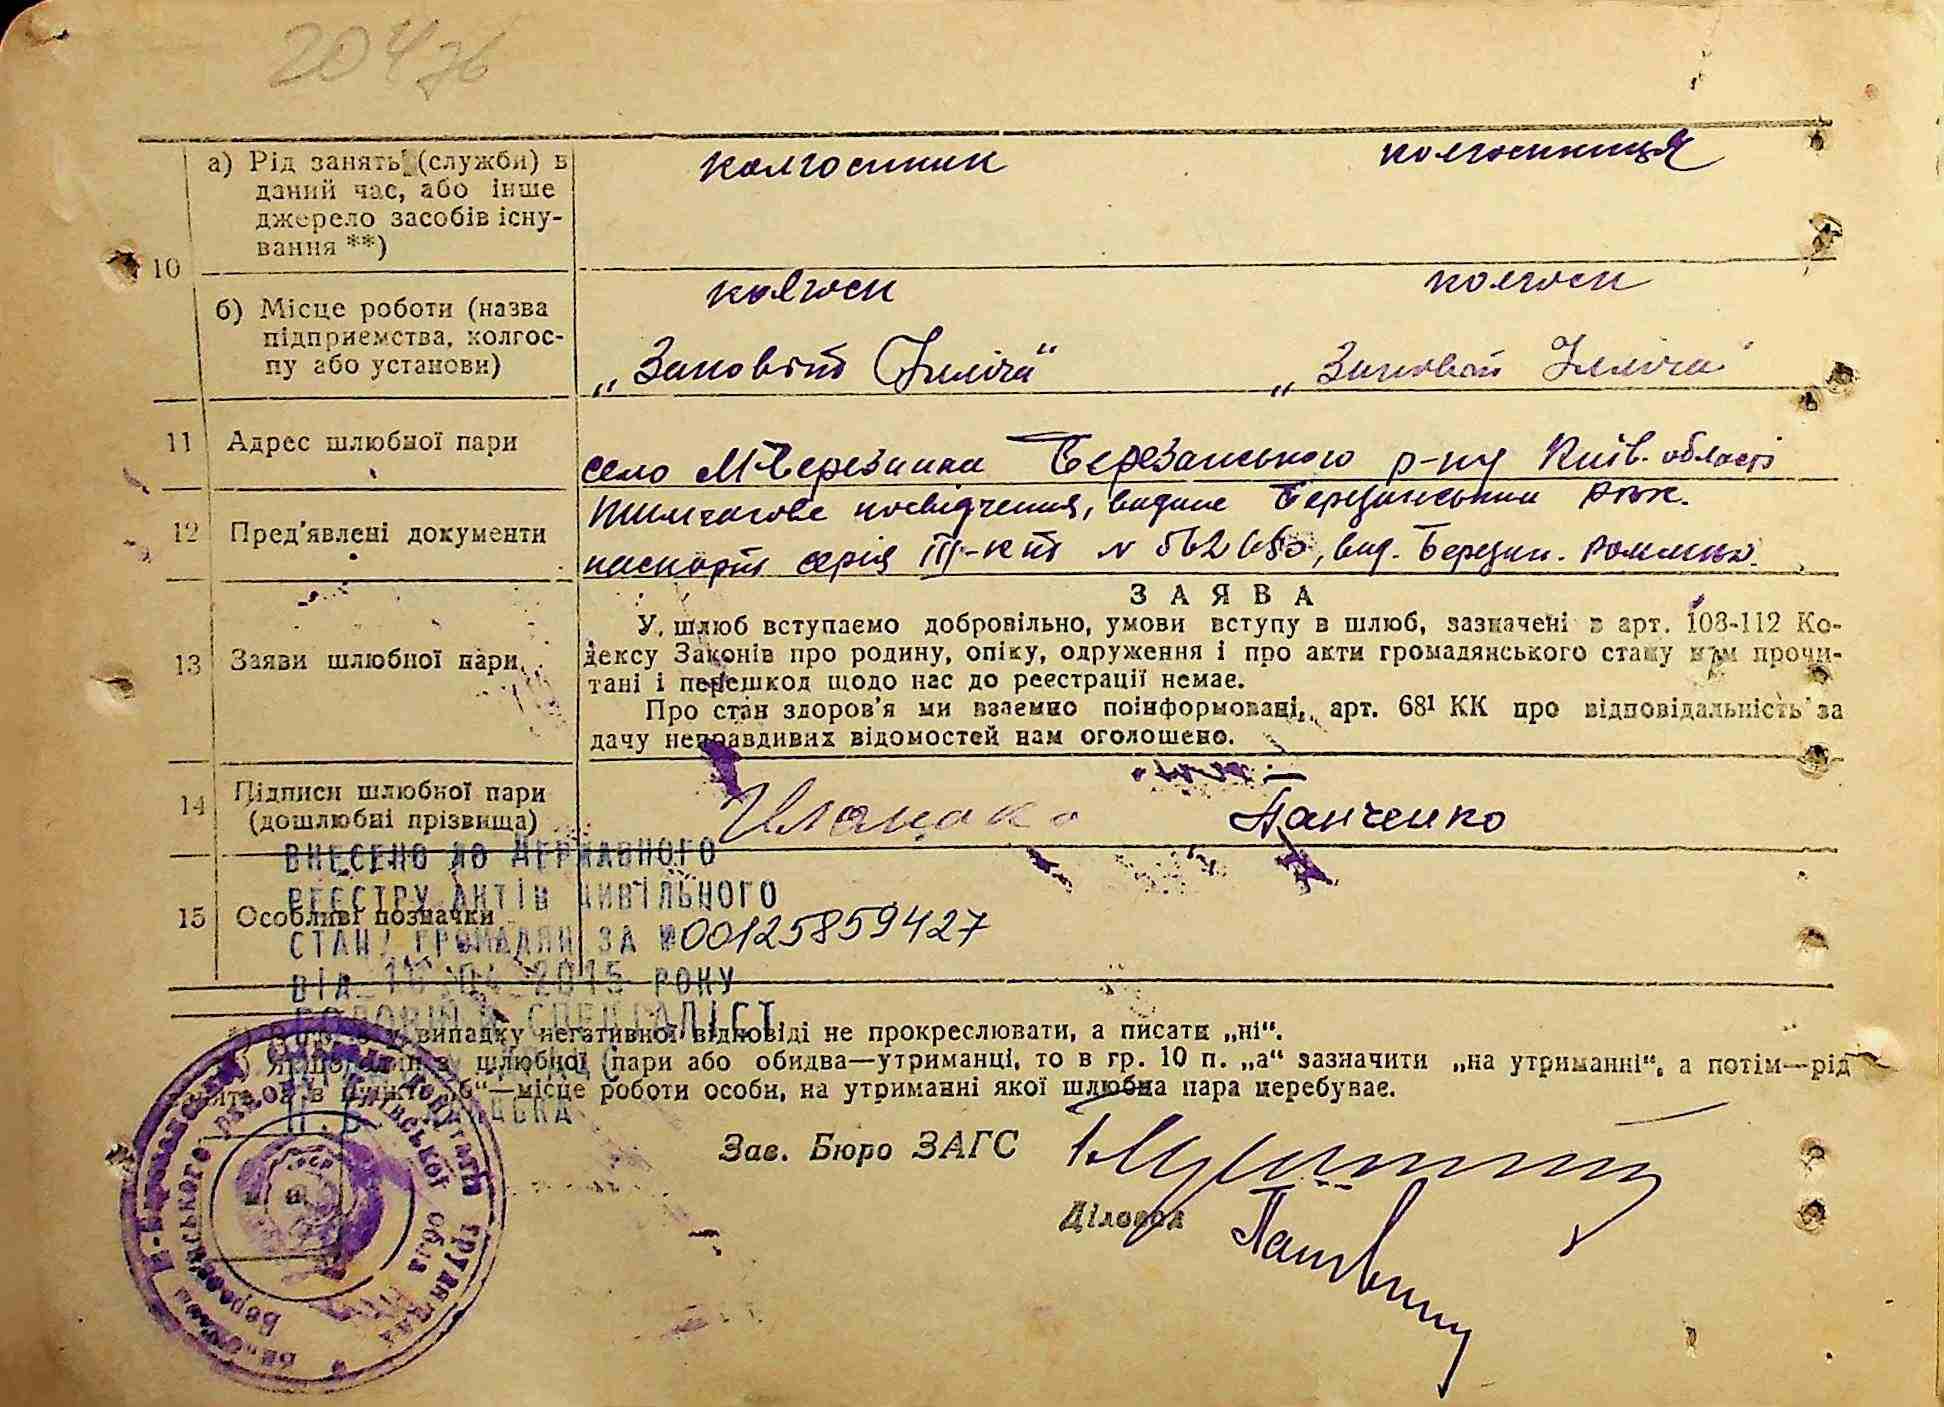 204 76
а) Рід занять (служби) в
даний час, або інше
джерело засобів існу-
вання **)
колгоспник
колгоспниця
10
б) Місце роботи (назва
підприємства, колгос-
пу або установи)
колгосп
„Заповіт Ілліча“
колгосп
„Заповіт Ілліча“
11 Адрес шлюбної пари
село М-Березанка Березанського р-ну Київ. області
12 Пред'явлені документи
Тимчасове посвідчення, видане Березанським
паспорт серія III-КП № вид. Березан.
13 Заяви шлюбної пари
ЗАЯВА
У шлюб вступаємо добровільно, умови вступу в шлюб, зазначені в арт. 108-112 Ко-
дексу Законів про родину, опіку, одруження і про акти громадянського стану нам прочи-
тані і перешкод щодо нас до реєстрації немає.
Про стан здоров'я ми взаємно поінформовані, арт. 68¹ КК про відповідальність за
дачу неправдивих відомостей нам оголошено.
14 Підписи шлюбної пари
(дошлюбні прізвища)
Панченко
ВНЕСЕНО ДО ДЕРЖАВНОГО
РЕЄСТРУ АКТІВ ЦИВІЛЬНОГО
15 Особливі позначки
СТАНУ ГРОМАДЯН ЗА №00125859427
ВІД 04 2015 РОКУ
ГОЛОВНИЙ СПЕЦІАЛІСТ
у випадку негативної відповіді не прокреслювати, а писати „ні“.
Якщо один з шлюбної пари або обидва—утриманці, то в гр. 10 п. „а“ зазначити „на утриманні“, а потім—рід
занять, а в пункті „б“—місце роботи особи, на утриманні якої шлюбна пара перебуває.
Зав. Бюро ЗАГС
Діловод